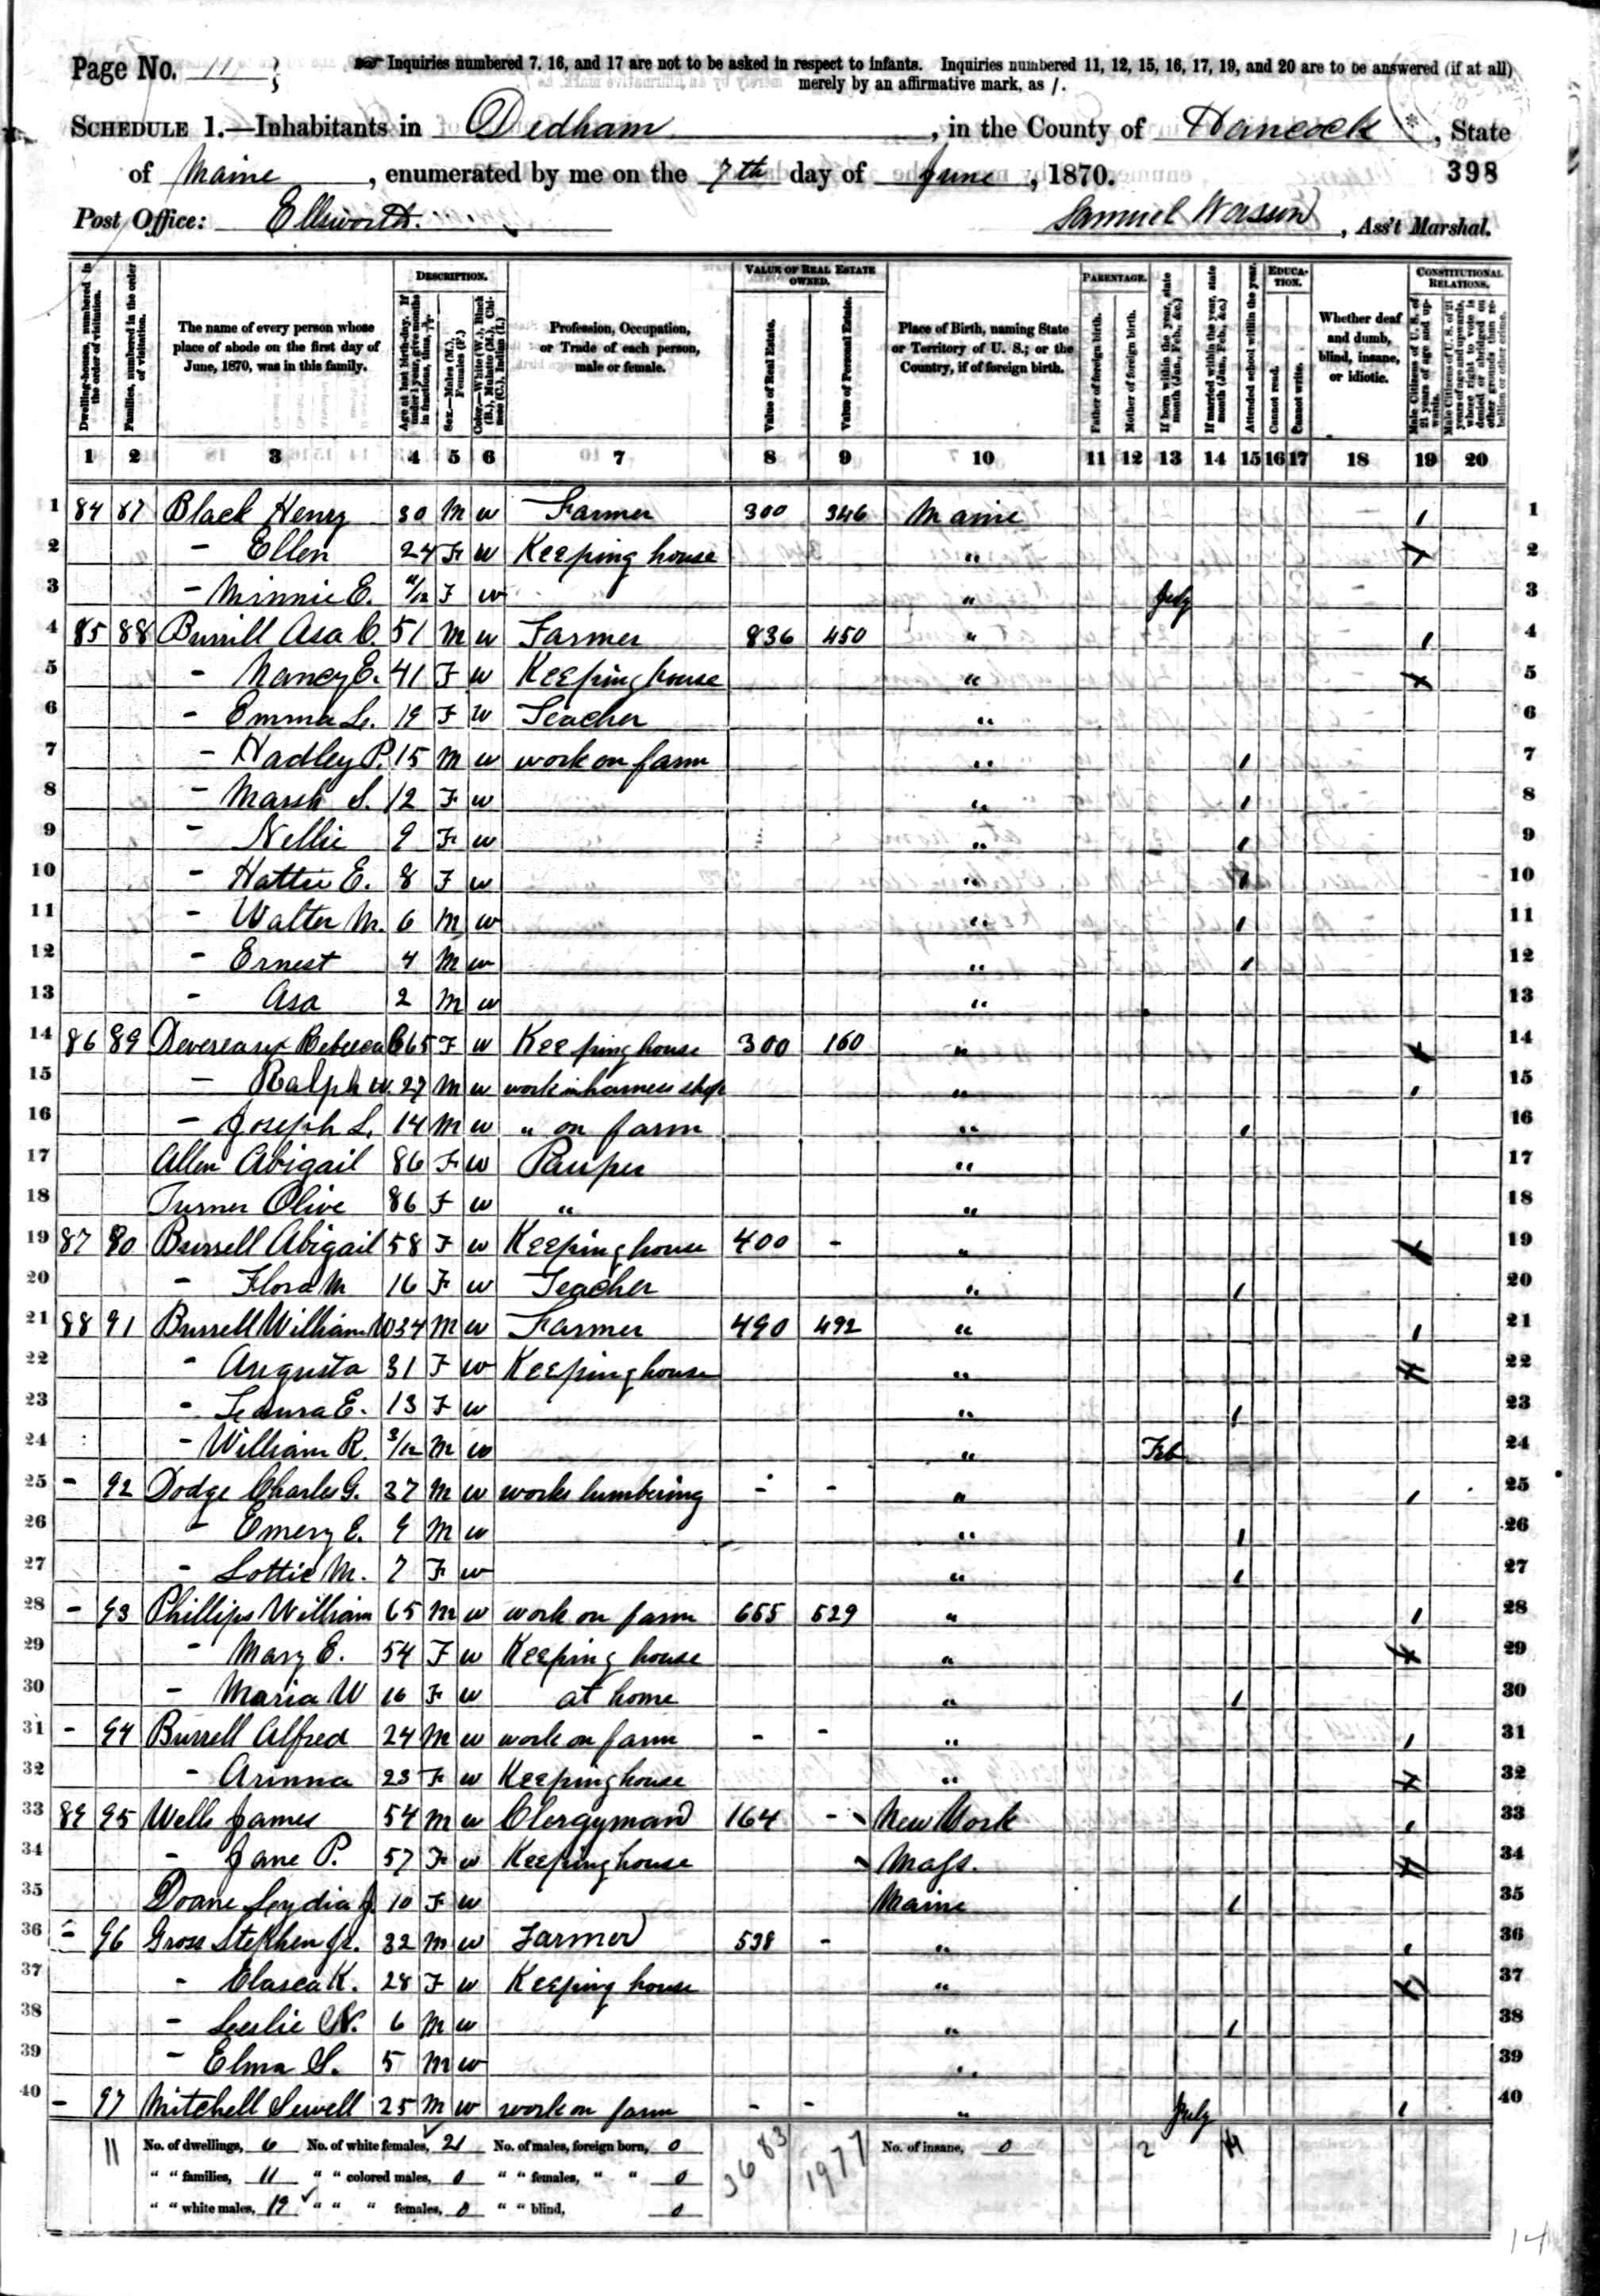 Page No. 11
Inquiries numbered 7, 16, and 17 are not to be asked in respect to infants. Inquiries numbered 11, 12, 15, 16, 17, 19, and 20 are to be answered (if at all)
merely by an affirmative mark, as /.
SCHEDULE 1.—Inhabitants in Dedham, in the County of Hancock, State
of Maine, enumerated by me on the 7th day of June, 1870.
398
Post Office: Ellsworth.
Samuel Wasson, Ass't Marshal.
Dwelling-houses, numbered in the order of visitation.
Families, numbered in the order of visitation.
The name of every person whose place of abode on the first day of June, 1870, was in this family.
DESCRIPTION.
Age at last birth-day. If under 1 year, give months in fractions, thus, 3/12
Sex.—Males (M.), Females (F.)
Color.—White (W.), Black (B.), Mulatto (M.), Chinese (C.), Indian (I.)
Profession, Occupation, or Trade of each person, male or female.
VALUE OF REAL ESTATE OWNED.
Value of Real Estate.
Value of Personal Estate.
Place of Birth, naming State or Territory of U. S.; or the Country, if of foreign birth.
PARENTAGE.
Father of foreign birth.
Mother of foreign birth.
If born within the year, state month (Jan., Feb., &c.)
If married within the year, state month (Jan., Feb., &c.)
Attended school within the year.
EDUCATION.
Cannot read.
Cannot write.
Whether deaf and dumb, blind, insane, or idiotic.
CONSTITUTIONAL RELATIONS.
Male Citizens of U. S. of 21 years of age and upwards.
Male Citizens of U. S. of 21 years of age and upwards, whose right to vote is denied or abridged on other grounds than rebellion or other crime.
1 2 3 4 5 6 7 8 9 10 11 12 13 14 15 16 17 18 19 20
1 84 87 Black Henry 30 M W Farmer 300 346 Maine / 1
2 – Ellen 24 F W Keeping house " 2
3 – Minnie E. 11/12 F W " July 3
4 85 88 Burrill Asa C. 51 M W Farmer 836 450 " / 4
5 – Nancy E. 41 F W Keeping house " 5
6 – Emma L. 19 F W Teacher " 6
7 – Hadley P. 15 M W work on farm " / 7
8 – Marsh S. 12 F W " / 8
9 – Nellie 9 F W " / 9
10 – Hattie E. 8 F W " / 10
11 – Walter M. 6 M W " / 11
12 – Ernest 4 M W " / 12
13 – Asa 2 M W " 13
14 86 89 Devereaux Rebecca 65 F W Keeping house 300 160 " 14
15 – Ralph W. 27 M W work in harness shop " / 15
16 – Joseph L. 14 M W " on farm " / 16
17 Allen Abigail 86 F W Pauper " 17
18 Turner Olive 86 F W " " 18
19 87 80 Burrell Abigail 58 F W Keeping house 400 - " 19
20 – Flora M 16 F W Teacher " / 20
21 88 91 Burrell William W 34 M W Farmer 490 492 " / 21
22 – Augusta 31 F W Keeping house " 22
23 – Leaura E. 13 F W " / 23
24 – William R. 3/12 M W " Feb 24
25 – 92 Dodge Charles G. 37 M W works lumbering - - " / 25
26 – Emery E. 9 M W " / 26
27 – Lottie M. 7 F W " / 27
28 – 93 Phillips William 65 M W work on farm 655 529 " / 28
29 – Mary E. 54 F W Keeping house " 29
30 – Maria W 16 F W at home " / 30
31 – 94 Burrell Alfred 24 M W work on farm - - " / 31
32 – Arinna 23 F W Keeping house " 32
33 89 95 Wells James 54 M W Clergyman 164 - New York / 33
34 – Jane P. 57 F W Keeping house Mass. 34
35 Doane Lydia J. 10 F W Maine / 35
36 – 96 Gross Stephen Jr. 32 M W Farmer 538 - " / 36
37 – Clasea K. 28 F W Keeping house " 37
38 – Leslie N. 6 M W " / 38
39 – Elma S. 5 M W " 39
40 – 97 Mitchell Sewell 25 M W work on farm - - " July / 40
11 No. of dwellings, 6 No. of white females, 21 No. of males, foreign born, 0 3683 1977 No. of insane, 0 2 14
" " families, 11 " " colored males, 0 " " females, " " 0
" " white males, 19 " " " females, 0 " " blind, 0
14